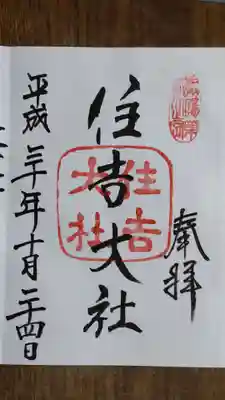 奉拝
住吉大社
住吉
大社
平成三十年十月二十四日